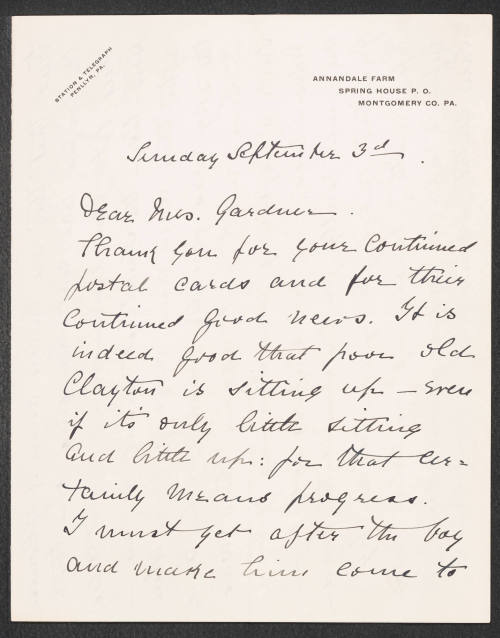 STATION & TELEGRAPH
PENLLYN, PA.
ANNANDALE FARM
SPRING HOUSE P. O.
MONTGOMERY CO. PA.
Sunday September 3d.
Dear Mrs. Gardner.
Thank you for your continued
postal cards and for their
continued good news. It is
indeed good that poor old
Clayton is sitting up – even
if it's only little sitting
and little up: for that cer=
tainly means progress.
I must get after the boy
and make him come to